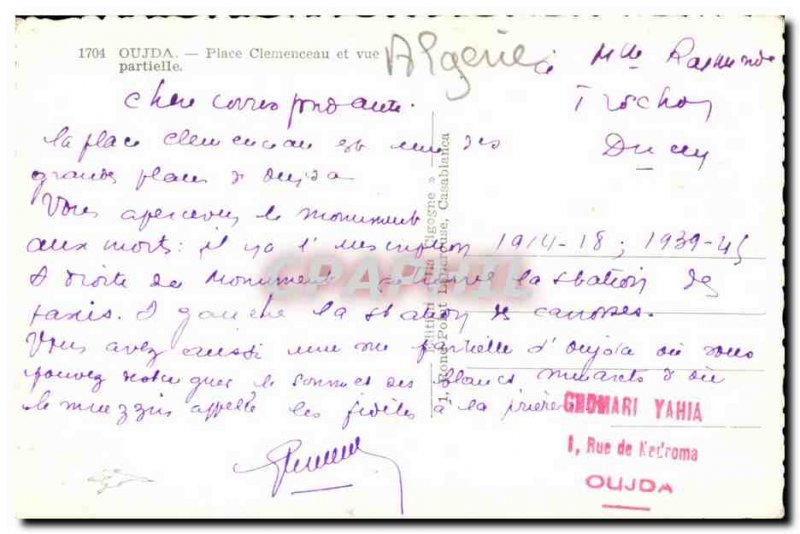 1704 OUJDA. — Place Clemenceau et vue
partielle.
Algérie
à Mlle Raymonde
Trochon
Ducey
Chère correspondante.
la place Clemenceau est une des
grandes places d'Oujda
Vous apercevez le monument
aux morts: il y a l'inscription 1914-18; 1939-45
A droite du Monument la station des
taxis. A gauche la station de carrosses.
Vous avez aussi une vue partielle d'Oujda où vous
pouvez le sommet des blancs minarets d'où
le muezzin appelle les fidèles à la prière
Edition « La Cigogne »
1, Rond-Point Lapérouse, Casablanca
CPAPHIL
GHOMARI YAHIA
1, Rue de Nedroma
OUJDA